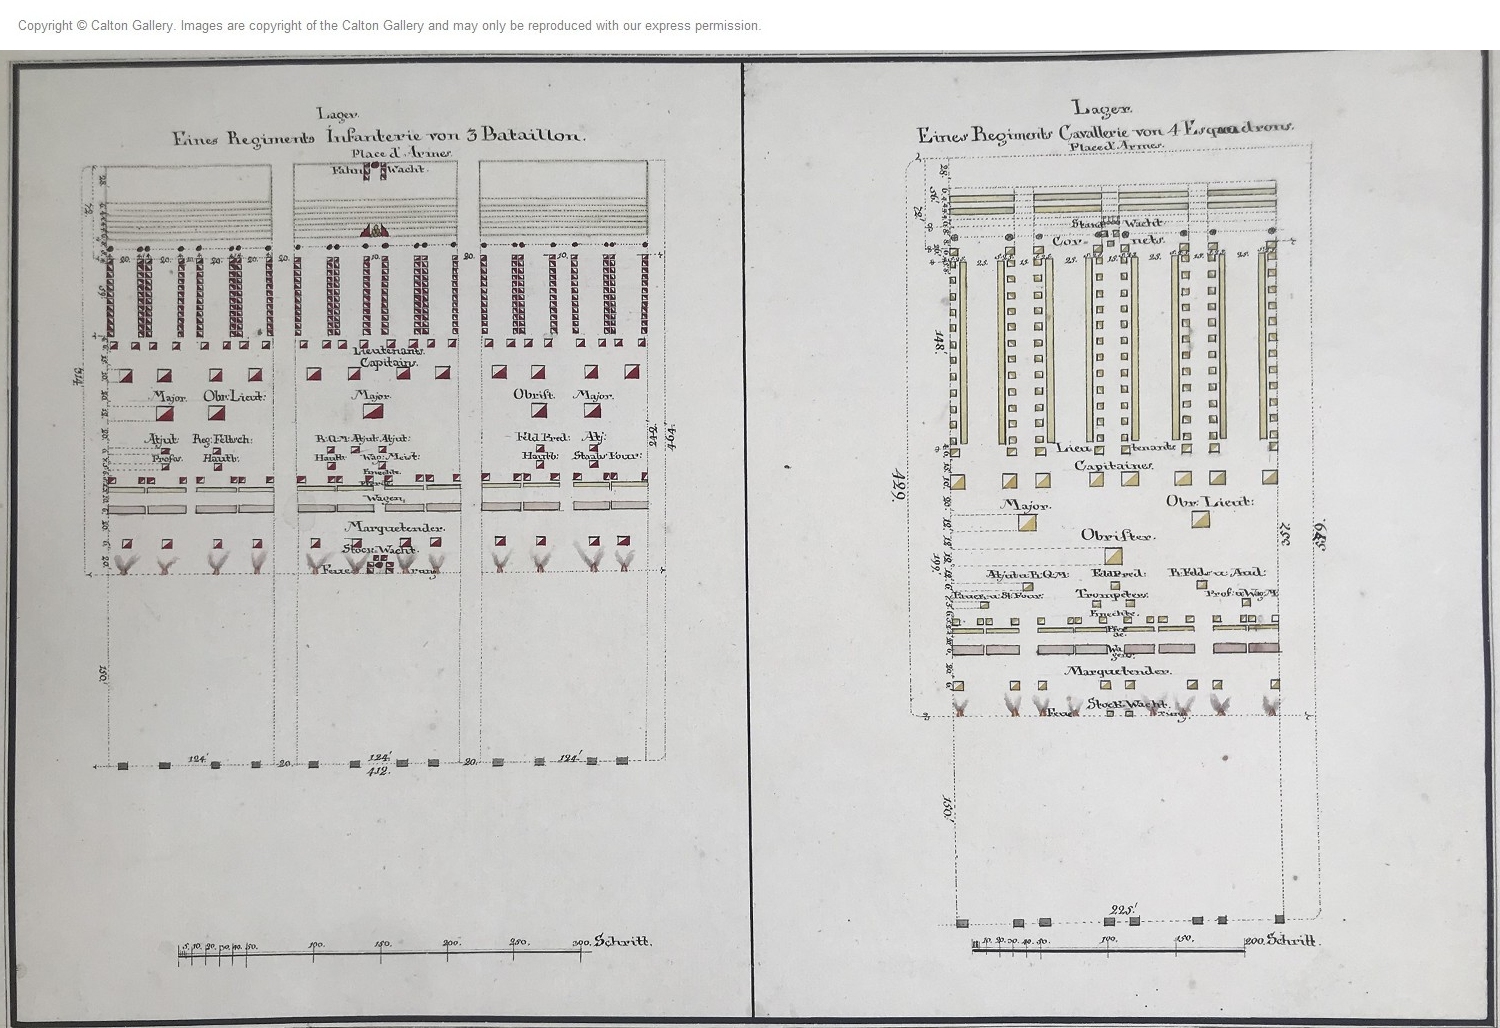 Copyright © Calton Gallery. Images are copyright of the Calton Gallery and may only be reproduced with our express permission.
Lager.
Eines Regiments Infanterie von 3 Bataillon.
Place d'Armes.
Fahn Wacht.
28.
72.
20. 20. 10. 20. 20. 10. 20. 10.
59.
Lieutenants.
Capitains.
314.
Major. Obr: Lieut: Major. Obrist. Major.
Adjut: Reg: Feltsch: R.Q.M: Adjut. Adjut: Feld Pred: Adj:
Profos. Hautb. Hautb. Wag: Meist: Hautb: Staabs Four:
Knechte.
Pferde.
Wagen.
242. 464.
Marquetender.
Stock-Wacht.
Feue rung
150.
124. 20. 124. 20. 124.
412.
5. 10. 20. 30. 40. 50. 100. 150. 200. 250. 300. Schritt.
Lager.
Eines Regiments Cavallerie von 4 Esquadrons.
Place d'Armes.
28.
72.
Stand Wacht
Cor- nets.
25. 15. 25. 15. 25. 15. 25.
148.
Lieu tenants
Capitaines.
429.
Major. Obr: Lieut:
Obrister.
199.
252. 645.
Adjut: u: R:Q:M: Feld Pred: R: Felds: u: Aud:
Pauck: u: St: Four: Trompeter. Prof: u: Wag: M.
Knechte.
Pfer
de.
Wa
gen.
Marquetender.
Stock-Wacht.
Feue rung.
150.
225.
10. 20. 30. 40. 50. 100. 150. 200. Schritt.